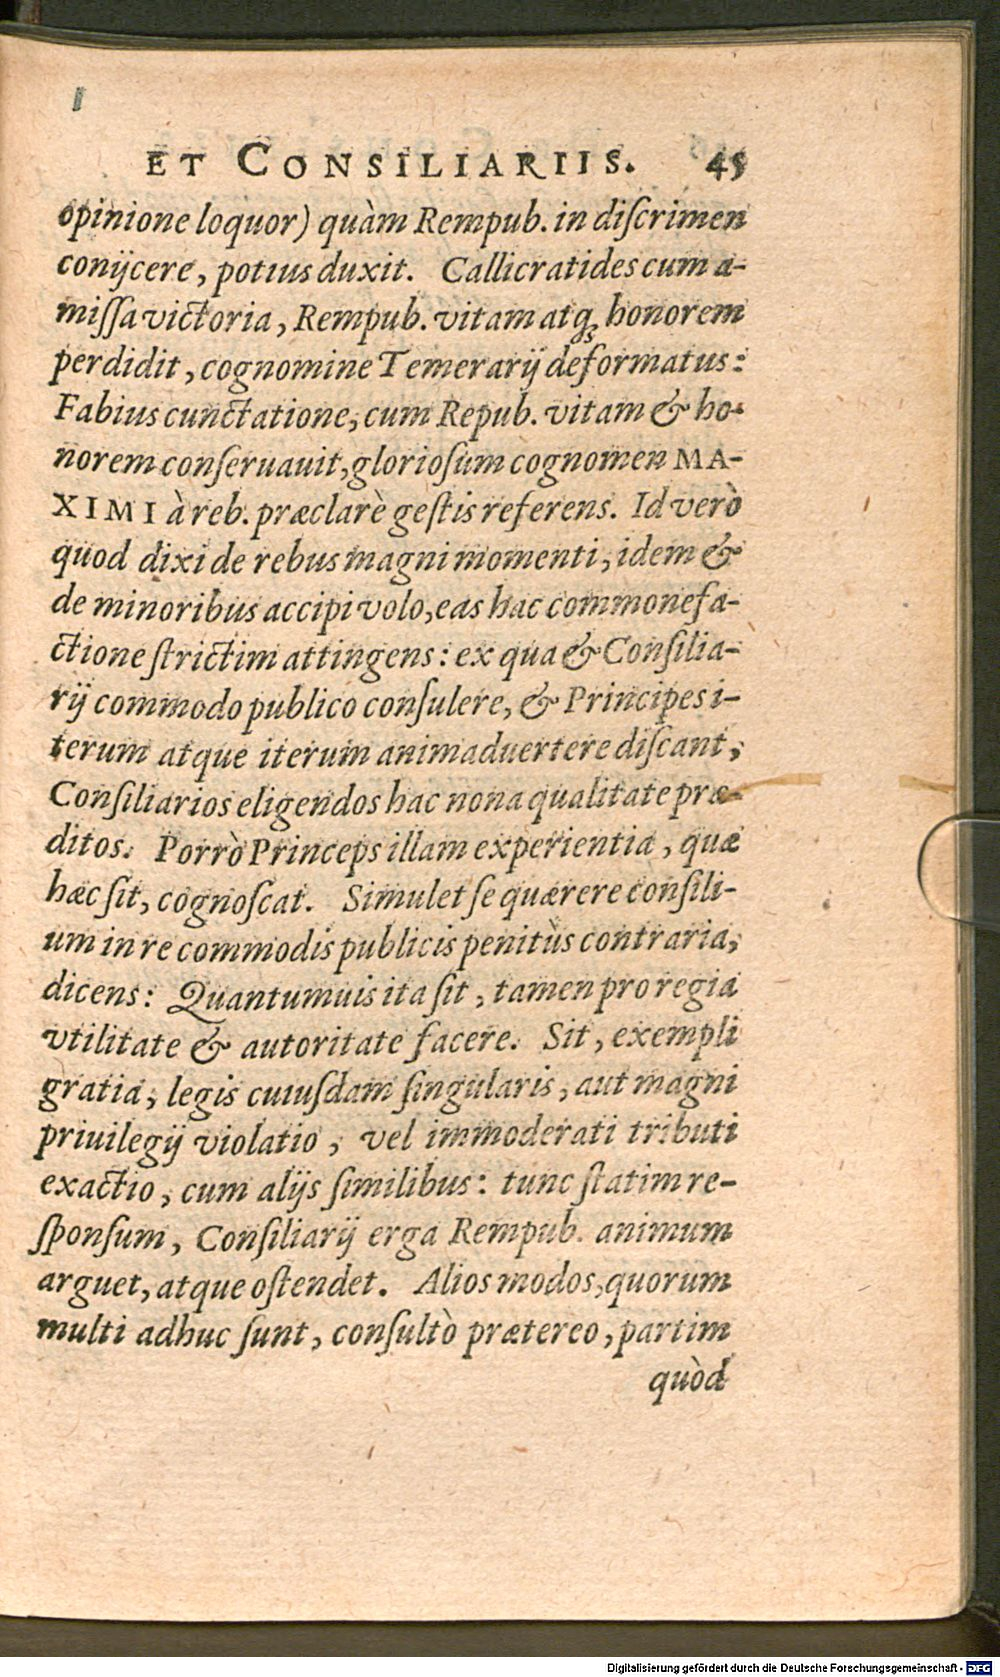 ET CONSILIARIIS. 45
opinione loquor) quàm Rempub. in diſcrimen
conijcere, potius duxit. Callicratides cum a-
miſſa victoria, Rempub. vitam atq; honorem
perdidit, cognomine Temerarij deformatus:
Fabius cunctatione, cum Repub. vitam & ho-
norem conſeruauit, glorioſum cognomen MA-
XIMI à reb. præclarè geſtis referens. Id verò
quod dixi de rebus magni momenti, idem &
de minoribus accipi volo, eas hac commonefa-
ctione ſtrictim attingens: ex qua & Conſilia-
rij commodo publico conſulere, & Principes i-
terum atque iterum animaduertere diſcant,
Conſiliarios eligendos hac nona qualitate præ-
ditos. Porrò Princeps illam experientia, quæ
hæc ſit, cognoſcat. Simulet ſe quærere conſili-
um in re commodis publicis penitùs contraria,
dicens: Quantumuis ita ſit, tamen pro regia
vtilitate & autoritate facere. Sit, exempli
gratia, legis cuiuſdam ſingularis, aut magni
priuilegij violatio, vel immoderati tributi
exactio, cum alijs ſimilibus: tunc ſtatim re-
ſponſum, Conſiliarij erga Rempub. animum
arguet, atque oſtendet. Alios modos, quorum
multi adhuc ſunt, conſultò prætereo, partim
quòd
Digitalisierung gefördert durch die Deutsche Forschungsgemeinschaft - DFG